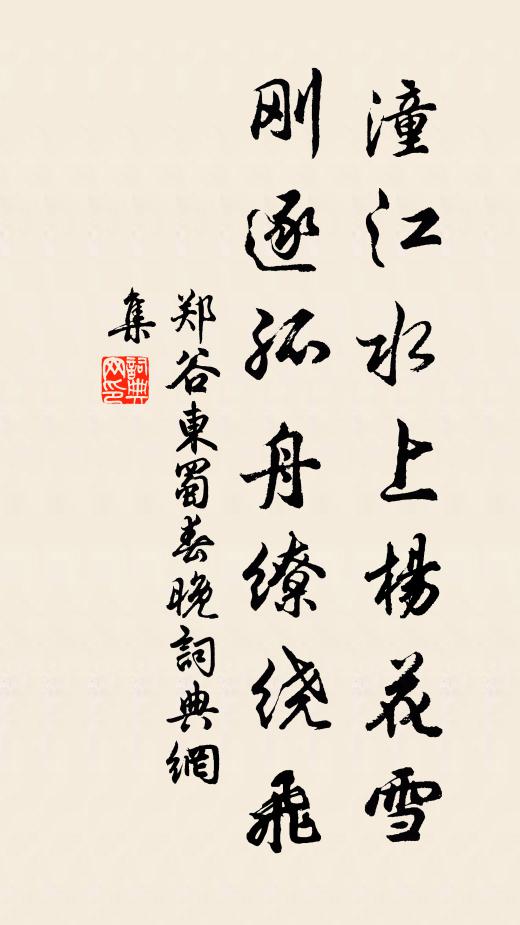 潼江水上楊花雪
刚逐孤舟缭绕飛
郑谷東蜀春晚詞典網
集
詞典网印